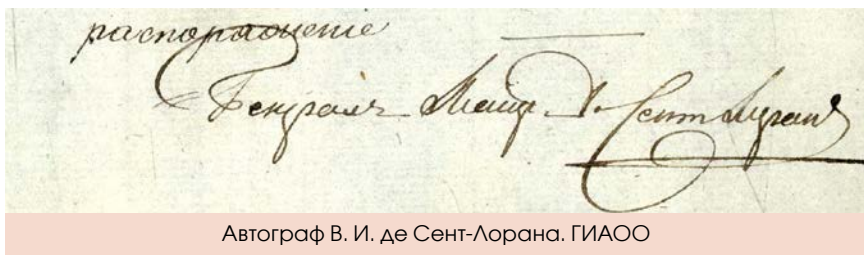 распоряженіе
Генералъ Маіоръ Д. Сентлоранъ
Автограф В. И. де Сент-Лорана. ГИАОО